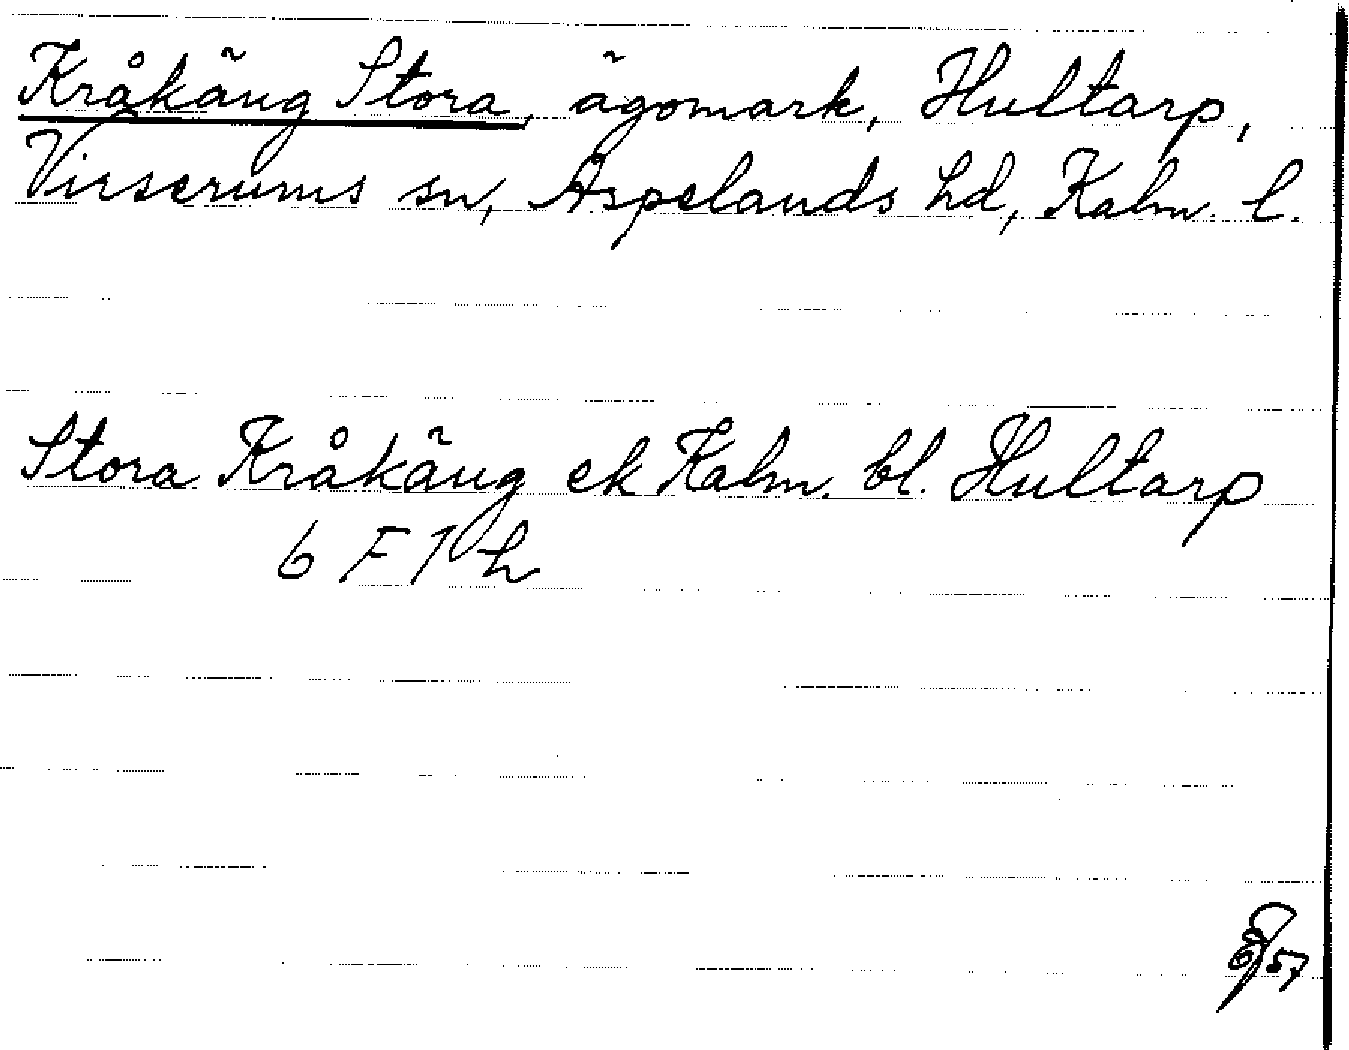 Kråkäng Stora, ägomark, Hultarp,
Virserums sn, Aspelands hd, Kalm. l.
Stora Kråkäng ek Kalm. bl. Hultarp
6 F 7 h